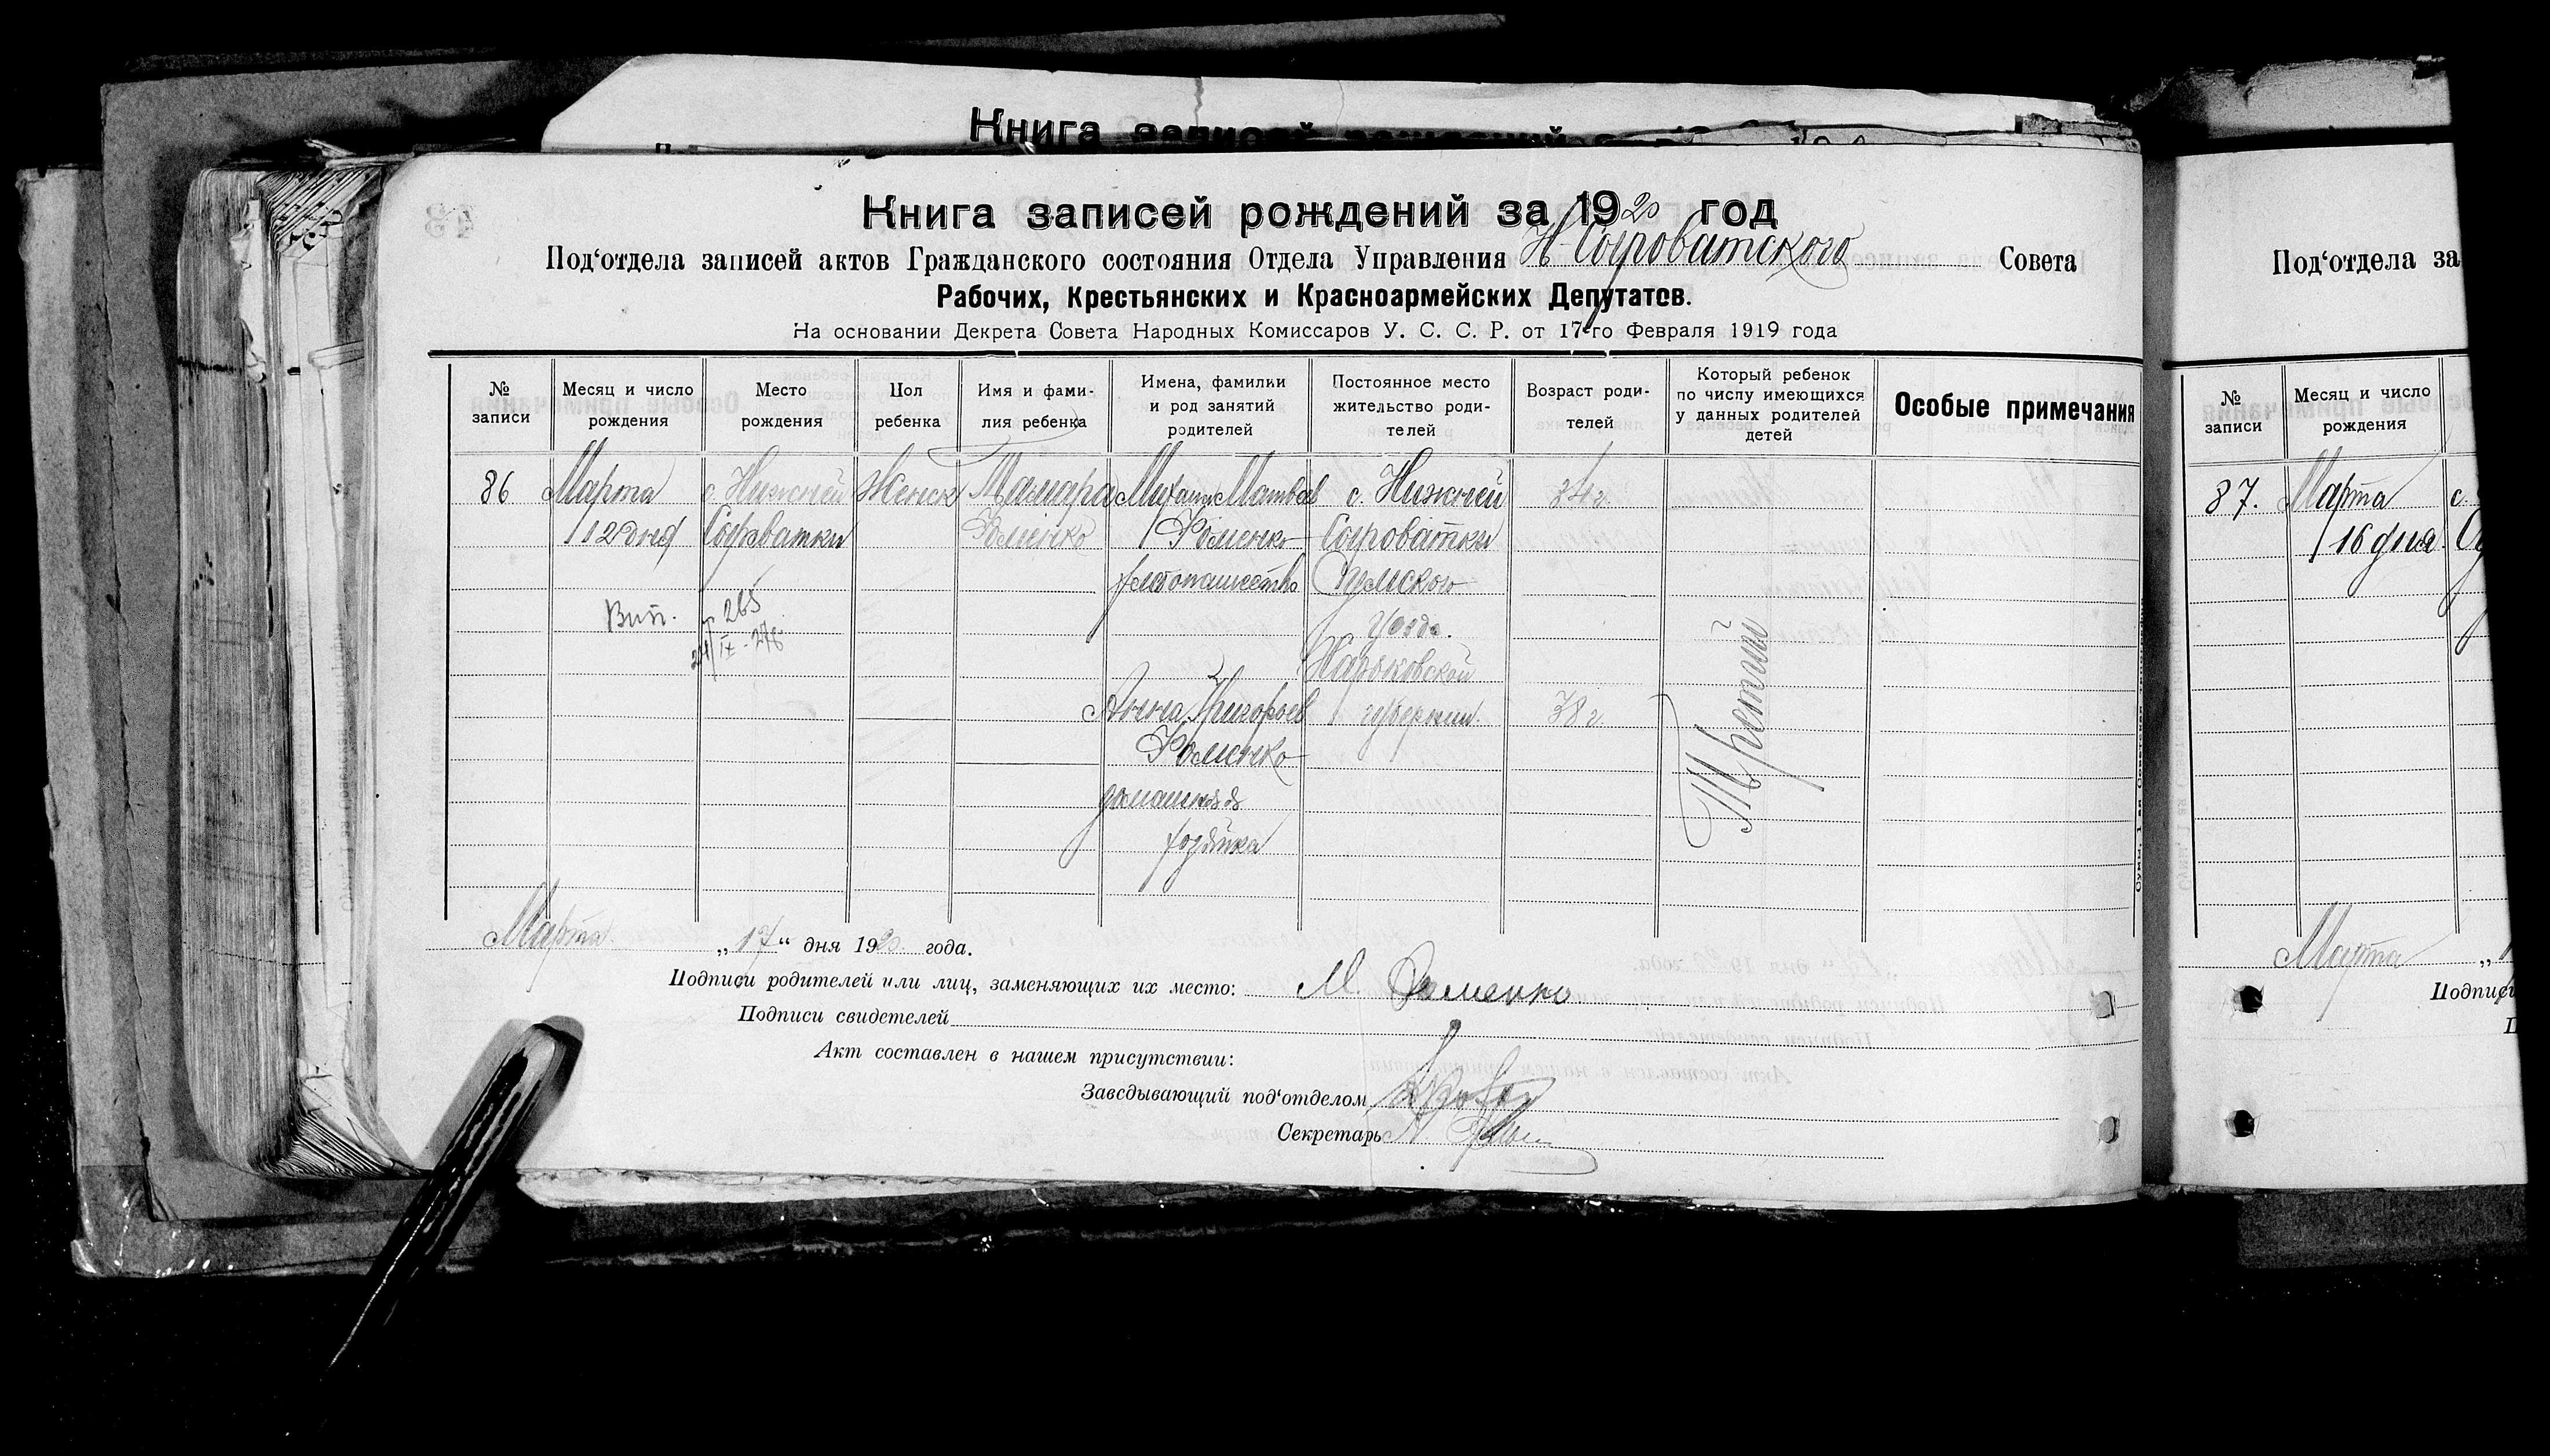 Книга записей рождений за 1920 год
Под‘отдела записей актов Гражданского состояния Отдела Управления Н-Сыроватского Совета
Рабочих, Крестьянских и Красноармейских Депутатов.
На основании Декрета Совета Народных Комиссаров У. С. С. Р. от 17-го Февраля 1919 года
№ записи
Месяц и число рождения
Место рождения
Пол ребенка
Имя и фами-
лия ребенка
Имена, фамилии
и род занятий
родителей
Постоянное место
жительство роди-
телей
Возраст роди-
телей
Который ребенок
по числу имеющихся
у данных родителей
детей
Особые примечания
86
Марта
12 дня
с. Нижней
Сыроватки
Женск
Тамара
Фоменко
Михаил Матвеев
Фоменко
хлебопашество
с. Нижней
Сыроватки
Сумского
уезда.
Харьковской
губернии.
34 г.
Вип. 265
24/IX-27г.
Анна Григорьев
Фоменко
домашняя
38 г.
Третий
Марта „17“ дня 1920 года.
Подписи родителей или лиц, заменяющих их место: М. Фоменко
Подписи свидетелей
Акт составлен в нашем присутствии:
Заведывающий под‘отделом
Секретарь
Под‘отдела за
№ записи
Месяц и число
рождения
87.
Марта
16 дня
с.
Марта